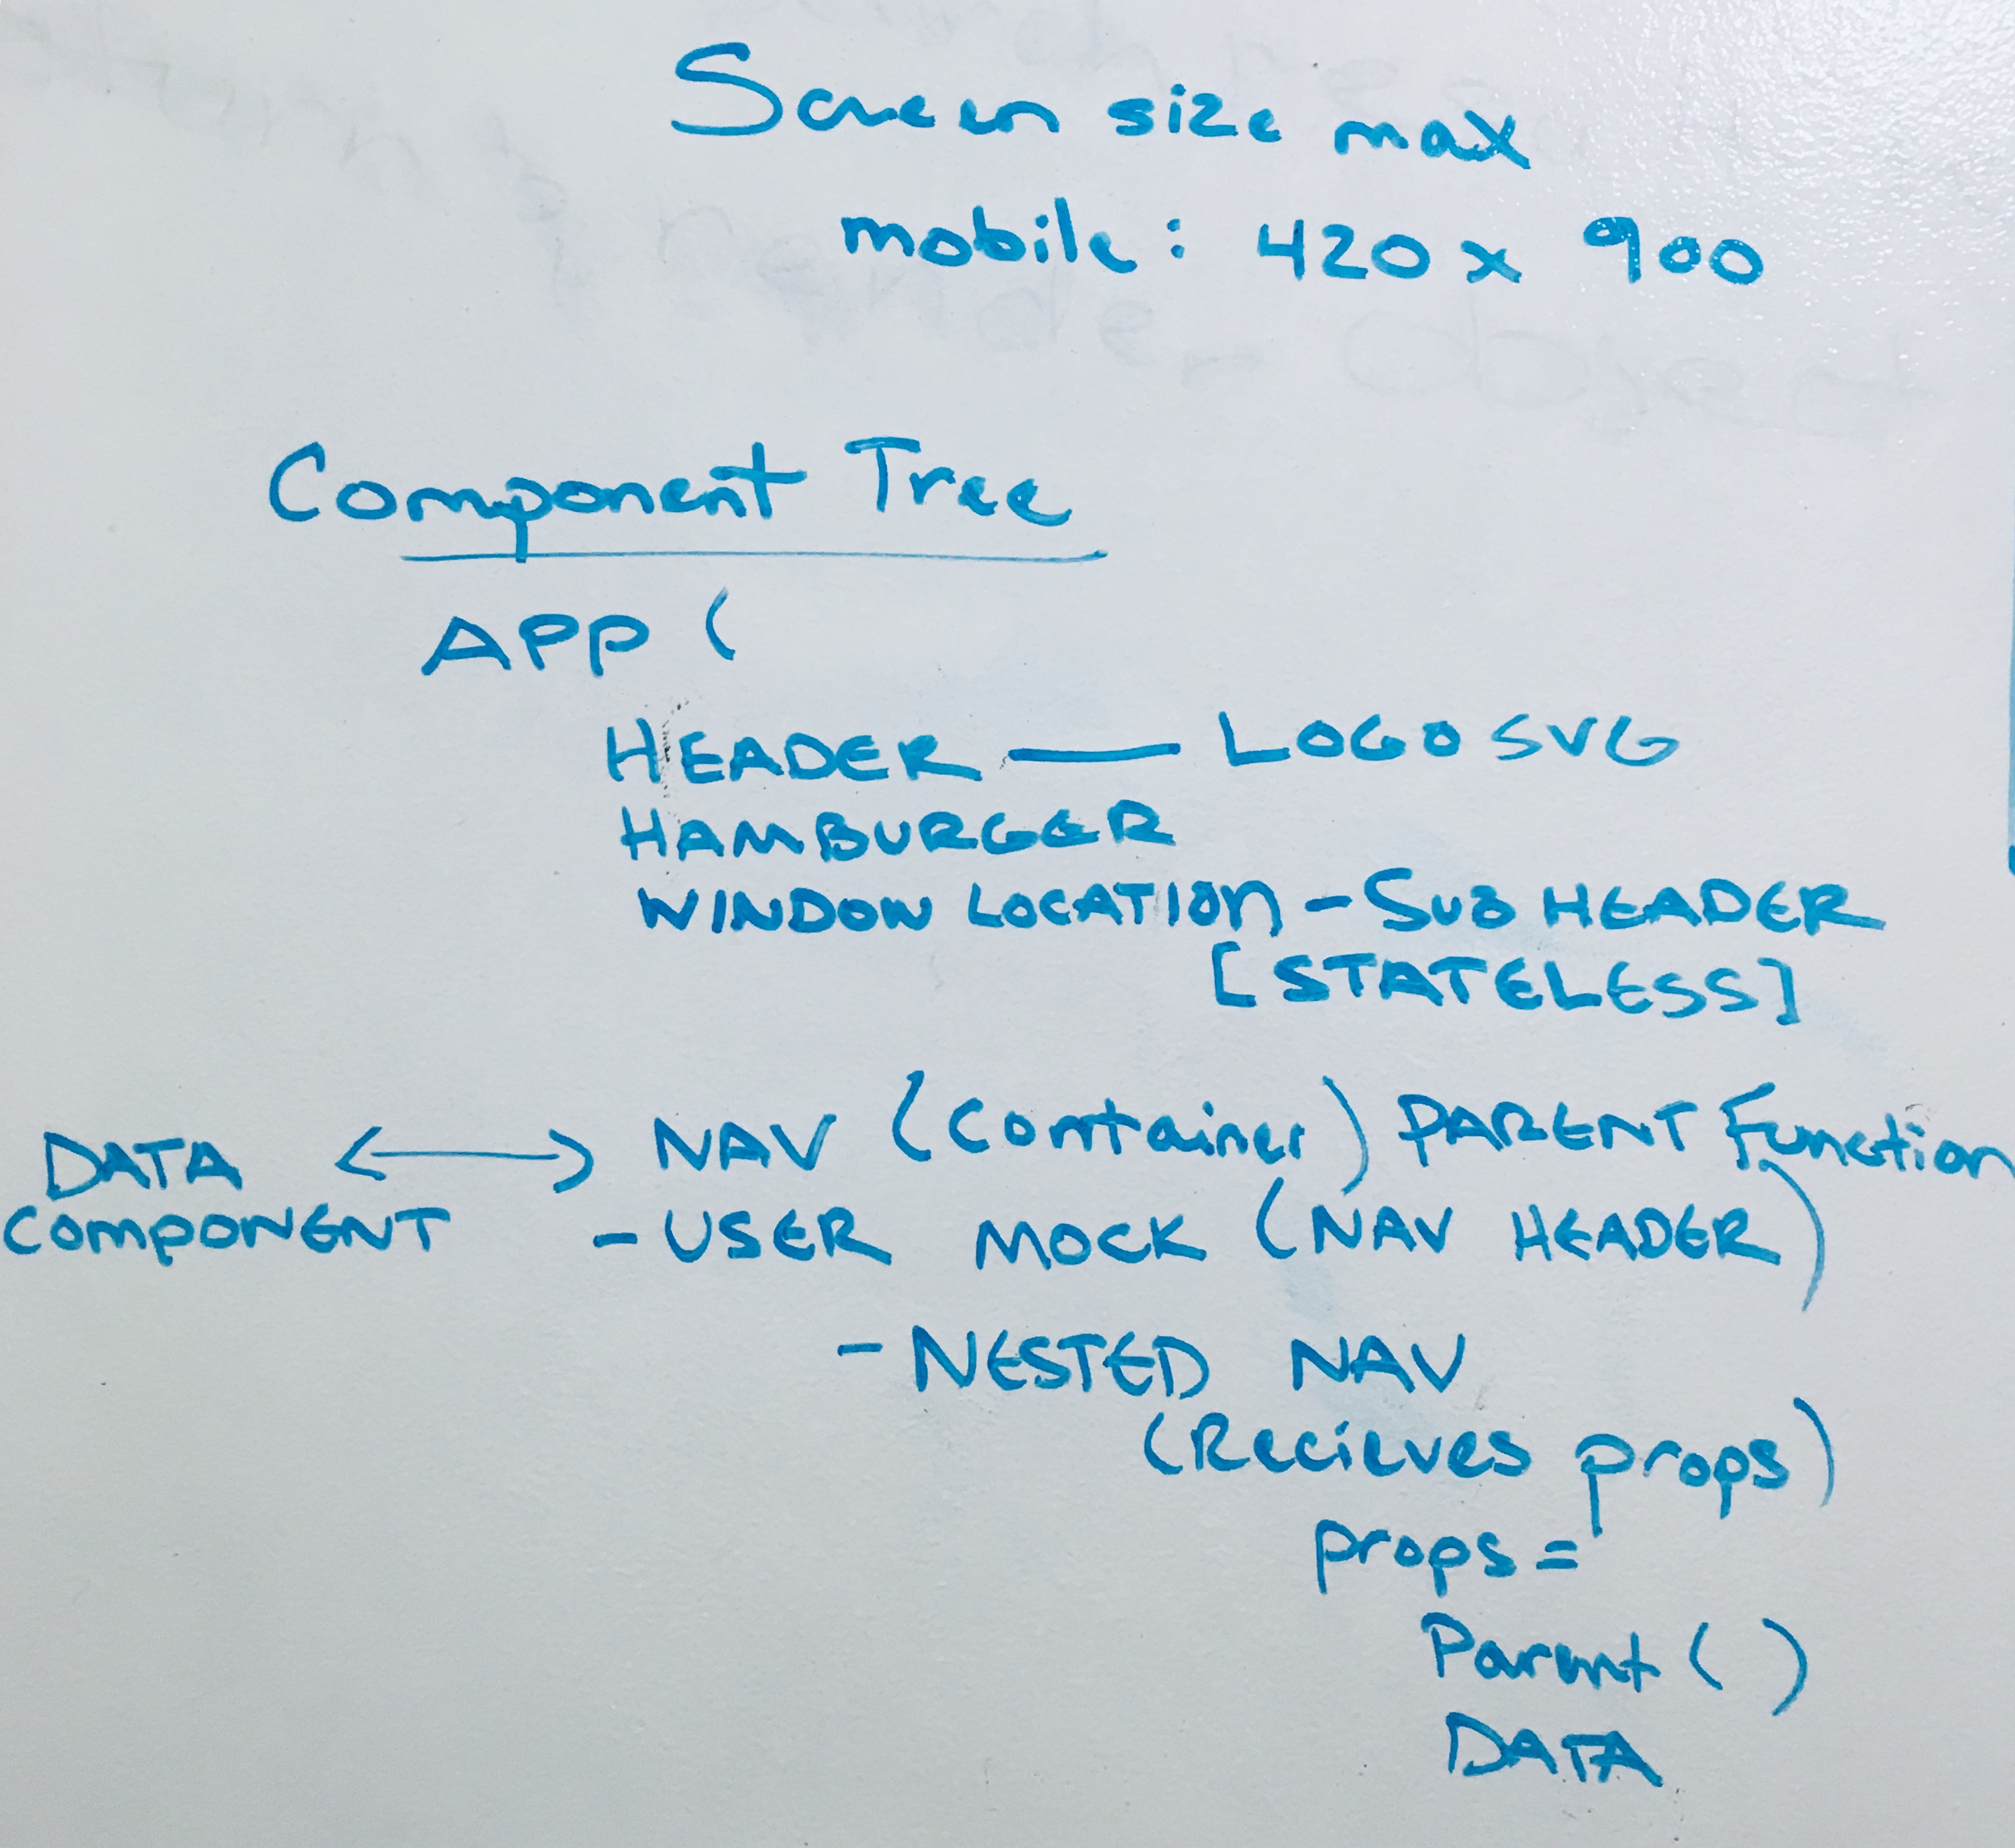 Screen size max
mobile: 420 x 900
Component Tree
APP (
HEADER — LOGO SVG
HAMBURGER
WINDOW LOCATION - SUB HEADER
[STATELESS]
DATA <—> NAV (Container) PARENT Function
COMPONENT - USER MOCK (NAV HEADER)
- NESTED NAV
(Recieves props)
props =
Parent ( )
DATA